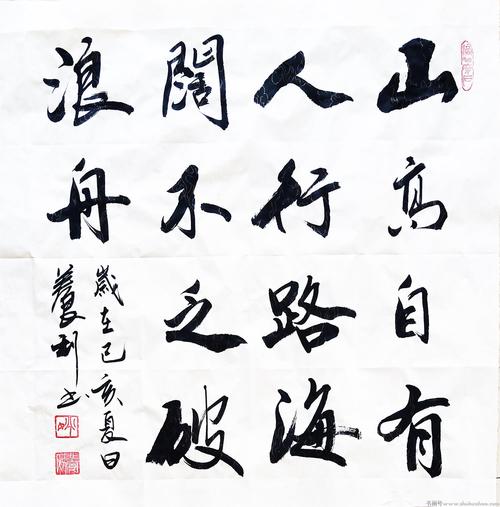 山高自有
人行路海
闊不乏破
浪舟
歲在己亥夏日
利书
书画号 www.shuhuahao.com